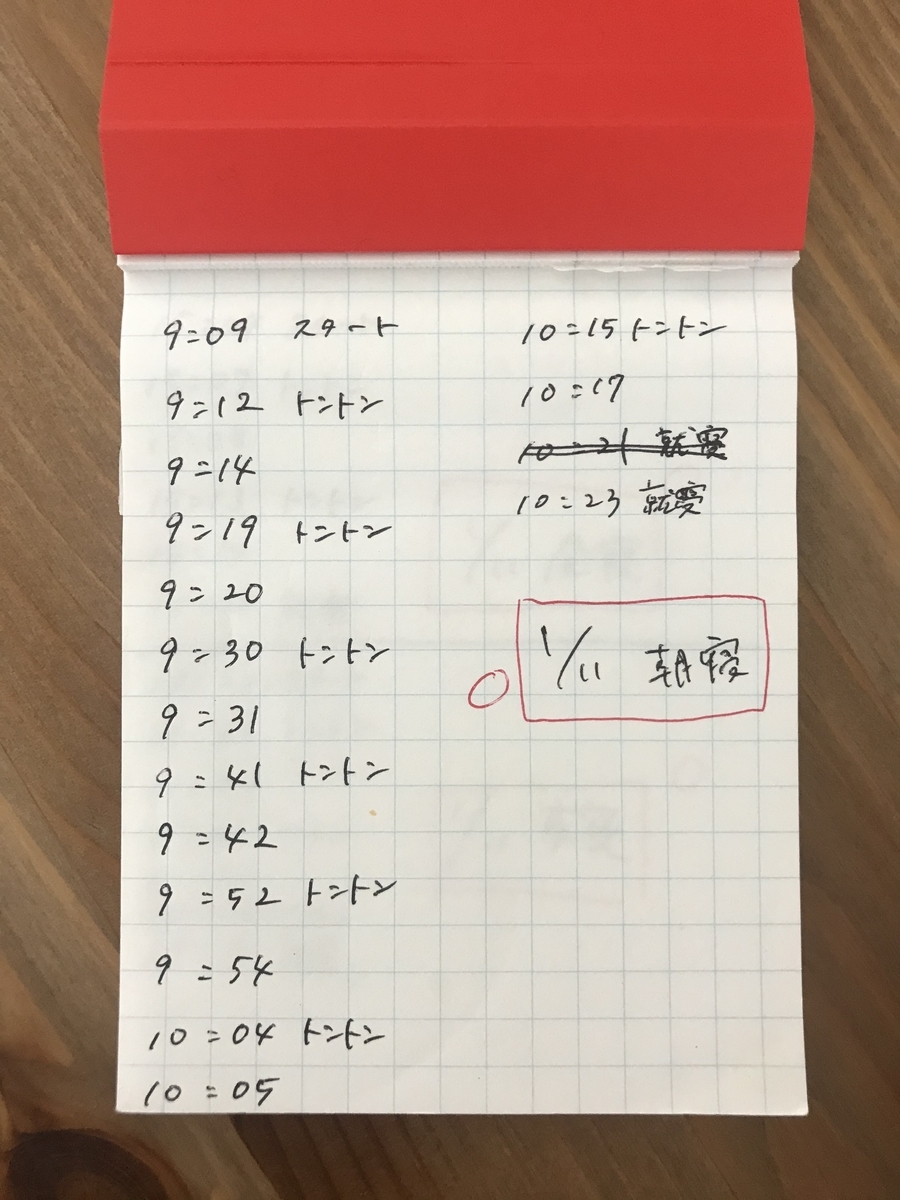 9=09 スタート
9=12 トントン
9=14
9=19 トントン
9=20
9=30 トントン
9=31
9=41 トントン
9=42
9=52 トントン
9=54
10=04 トントン
10=05
10=15 トントン
10=17
10=21 就寝
10=23 就寝
1/11 朝寝